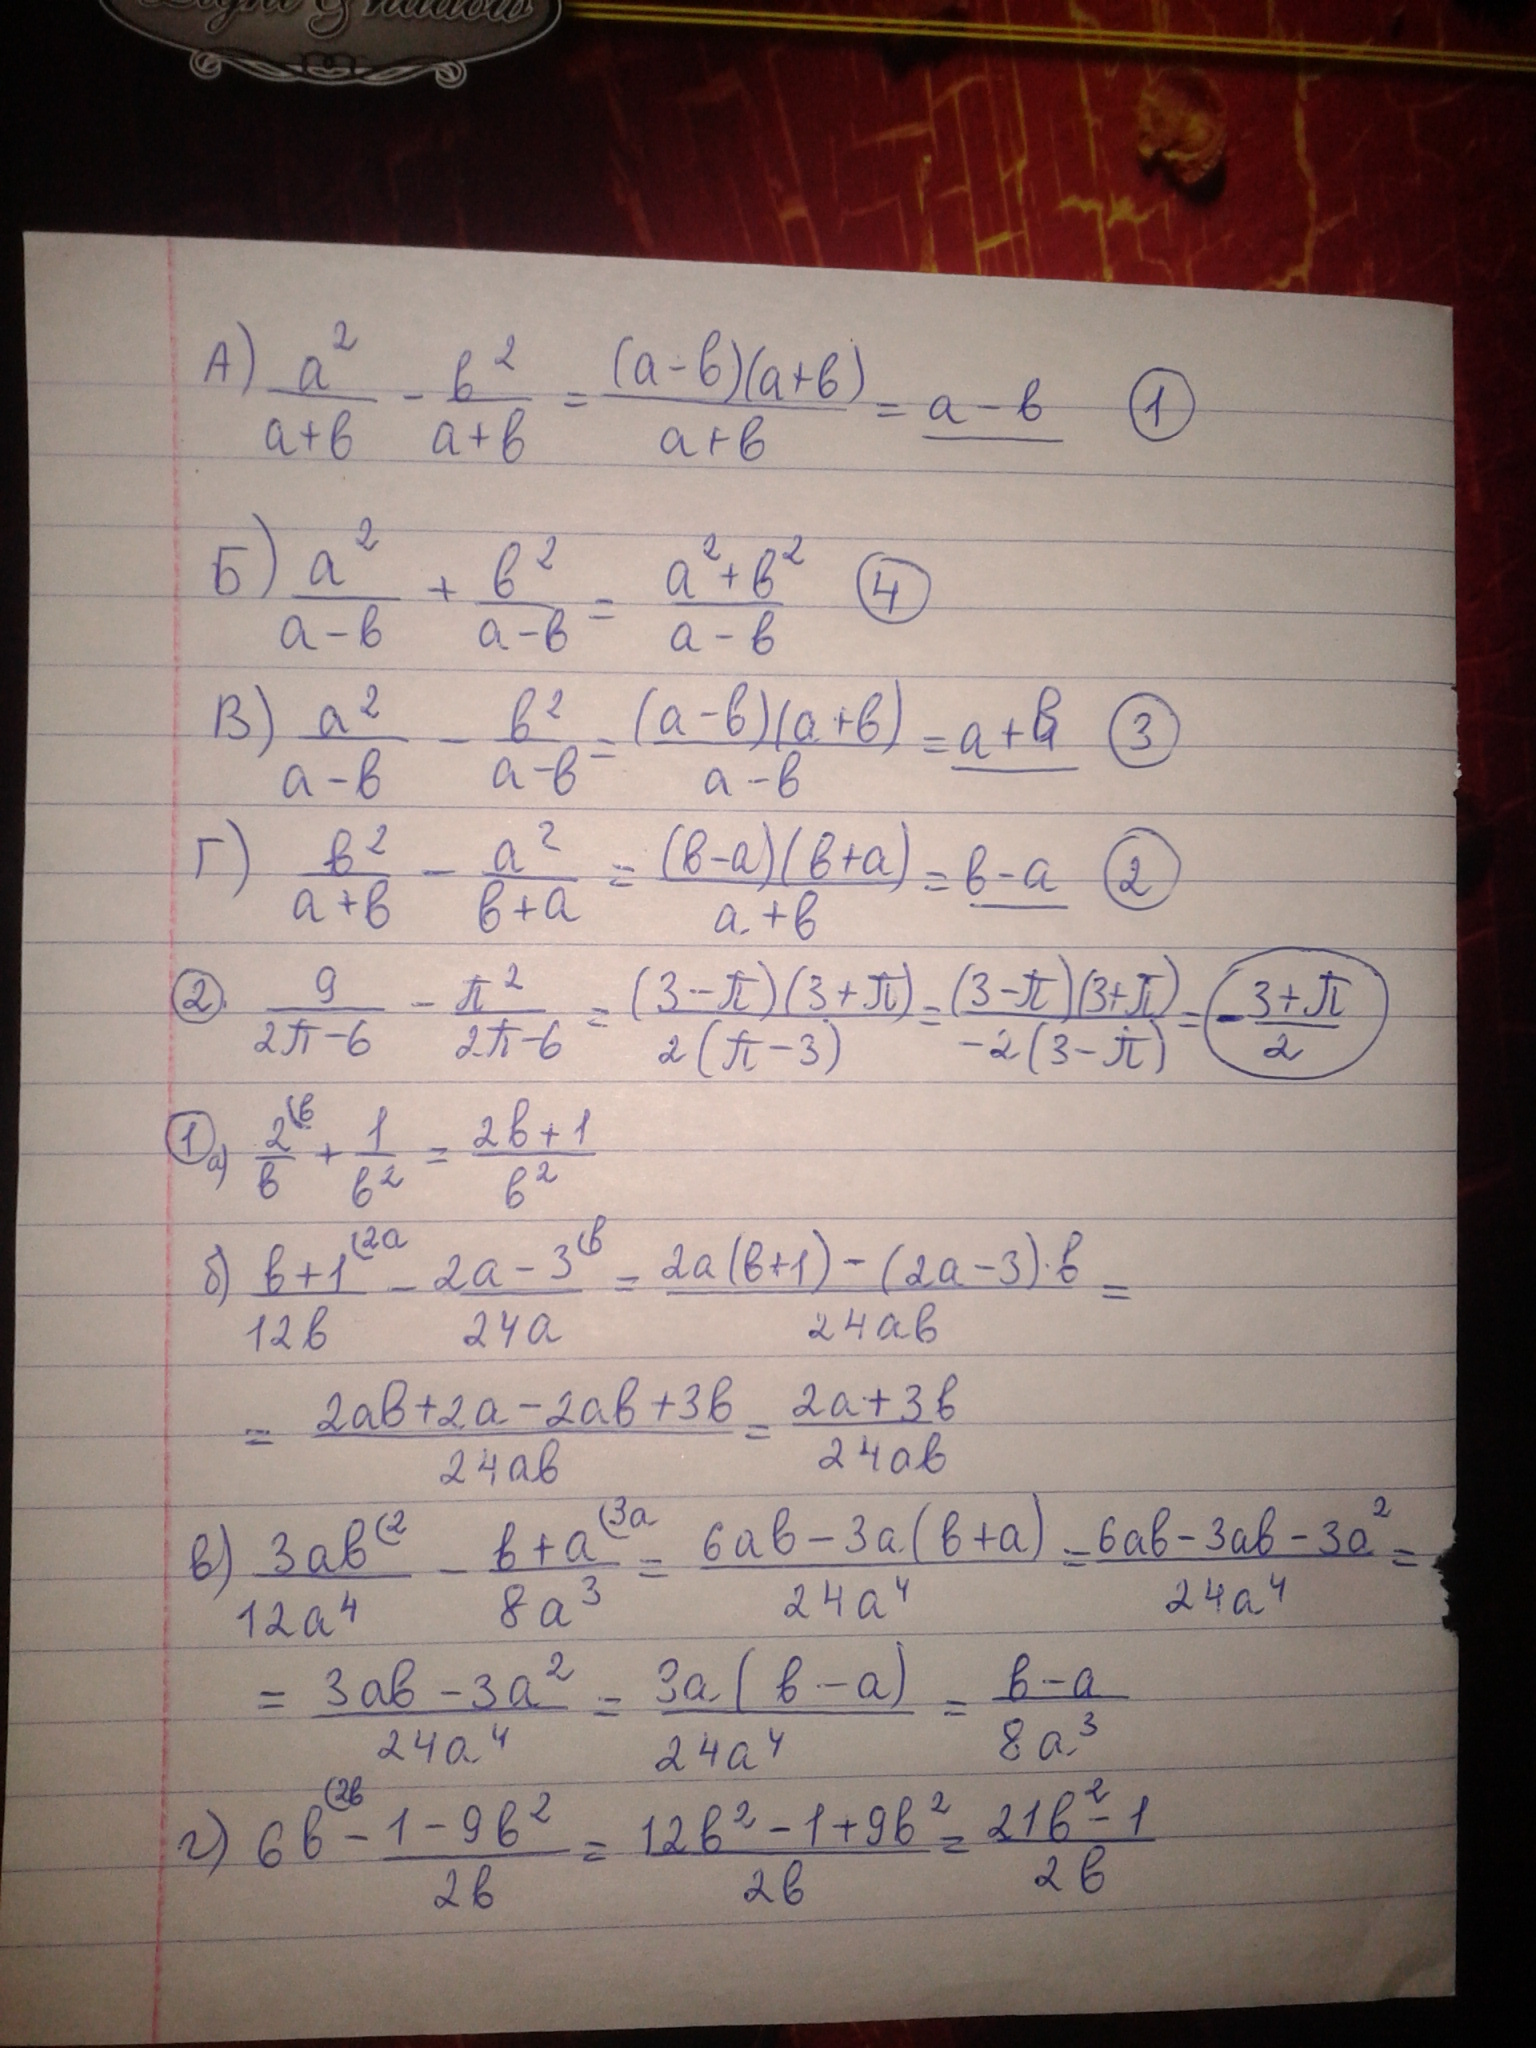 Light & Shadow
А) a²/(a+в) - в²/(a+в) = (a-в)(a+в)/(a+в) = a-в ①
Б) a²/(a-в) + в²/(a-в) = (a²+в²)/(a-в) ④
В) a²/(a-в) - в²/(a-в) = (a-в)(a+в)/(a-в) = a+в ③
Г) в²/(a+в) - a²/(в+a) = (в-a)(в+a)/(a+в) = в-a ②
②. 9/(2π-6) - π²/(2π-6) = (3-π)(3+π)/(2(π-3)) = (3-π)(3+π)/(-2(3-π)) = -(3+π)/2
① а) 2⁽ᵇ/в + 1/в² = (2в+1)/в²
б) (в+1)/(12в) (2a - (2a-3)/(24a) (в = (2a(в+1)-(2a-3)·в)/(24aв) =
= (2aв+2a-2aв+3в)/(24aв) = (2a+3в)/(24aв)
в) 3aв/(12a⁴) (2 - (в+a)/(8a³) (3a = (6aв-3a(в+a))/(24a⁴) = (6aв-3aв-3a²)/(24a⁴) =
= (3aв-3a²)/(24a⁴) = 3a(в-a)/(24a⁴) = (в-a)/(8a³)
г) 6в (2в - (1-9в²)/(2в) = (12в²-1+9в²)/(2в) = (21в²-1)/(2в)